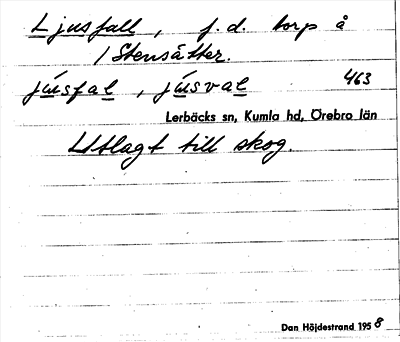 Ljusfall, f.d. torp å
/ Stensätter.
jusfal, júsval 463
Lerbäcks sn, Kumla hd, Örebro län
Utlagt till skog.
Dan Höjdestrand 1958